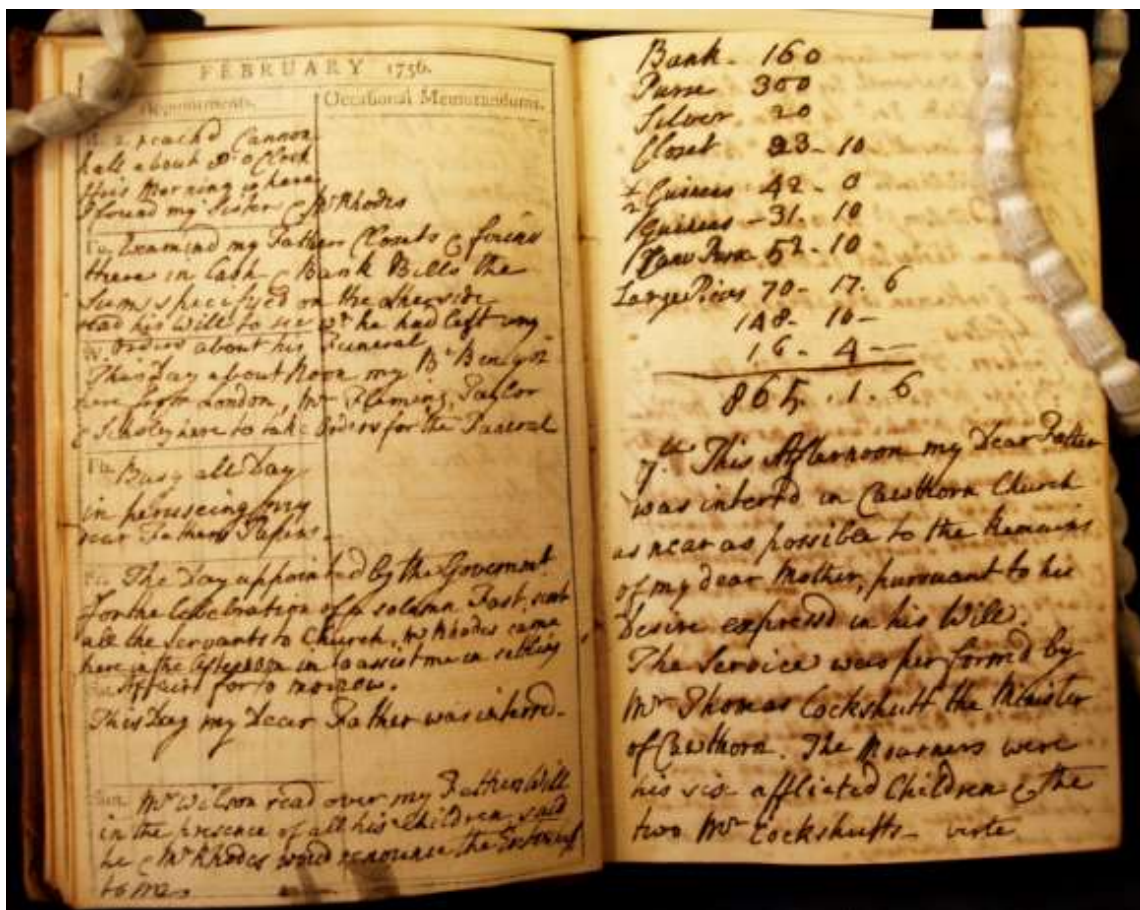 FEBRUARY 1756.
Appointments.
Occasional Memorandums.
reach'd Cannon
hall about 8 o Clock
this Morning where
I found my Sister & Mr Rhodes
Tu. Examind my Father Closets & found
there in Cash & Bank Bills the
Sum specifyed on the other side
read his Will to see wt he had left any
orders about his Funeral
W. This Day about Noon my Br Ben got
here from London, Mr Fleming, Taylor
& here to take Orders for the Funeral
Th. Busy all Day
in peruseing my
dear Fathers Papers.
Fri. The Day appointed by the Goverment
for the Celebration of a solamn Fast, sent
all the Servants to Church, Mr Rhodes came
here in the Afternoon to assist me in setling
Affairs for to morrow.
This Day my Dear Father was interrd.
Sun. Mr Wilson read over my Fathers Will
in the presence of all his children, said
he & Mr Rhodes would renounce the
to me.
Bank - 160
Purse 300
Silver 20
Closet 23 - 10
½ Guineas 42 - 0
Guineas - 31. 10
Purse 52 - 10
Large Pieces 70 - 17. 6
148 - 10 -
16 - 4 -
865 . 1 . 6
7th This Afternoon my Dear Father
was interrd in Cawthorn Church
as near as possible to the Remains
of my dear Mother, pursuant to his
Desire expressd in his Will.
The Service was performd by
Mr Thomas Cockshutt the Minister
of Cawthorn. The Mourners were
his six afflicted Children & the
two Mr Cockshutts - verte